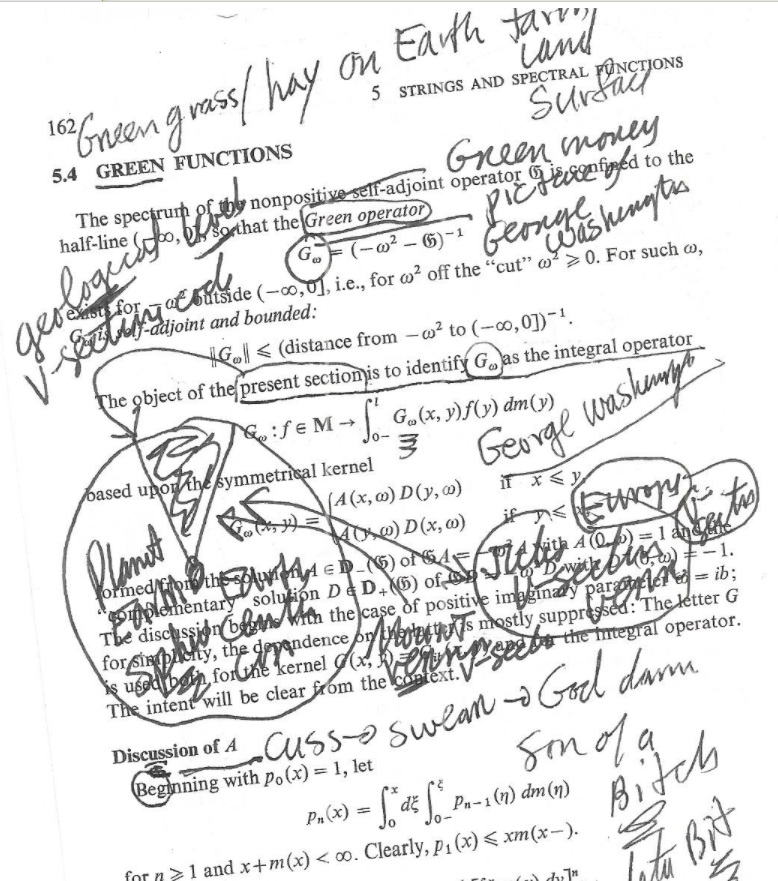 Green grass/ hay on Earth farm
Land
Surface
162
5 STRINGS AND SPECTRAL FUNCTIONS
5.4 GREEN FUNCTIONS
Green money
picture of
George
Washington
The spectrum of the nonpositive self-adjoint operator 𝔊 is confined to the
half-line (−∞, 0], so that the Green operator
G_ω = (−ω² − 𝔊)⁻¹
geological
V-sector
exists for −ω² outside (−∞, 0], i.e., for ω² off the "cut" ω² ⩾ 0. For such ω,
G_ω is self-adjoint and bounded:
‖G_ω‖ ⩽ (distance from −ω² to (−∞, 0])⁻¹.
The object of the present section is to identify G_ω as the integral operator
G_ω : f ∈ M → ∫₀₋ˡ G_ω(x, y) f(y) dm(y)
George Washington
based upon the symmetrical kernel
G_ω(x, y) = { A(x, ω) D(y, ω) if x ⩽ y,
A(y, ω) D(x, ω) if y ⩽ x,
Europe
Planet
Earth
formed from the solution A ∈ D₋(𝔊) of 𝔊A = −ω²A with A(0, ω) = 1 and the
"complementary" solution D ∈ D₊(𝔊) of 𝔊D = −ω²D with D⁻(0, ω) = −1.
The discussion begins with the case of positive imaginary parameter ω = ib;
for simplicity, the dependence on the latter is mostly suppressed: The letter G
is used both for the kernel G(x, y) = G_ω(x, y) and for the integral operator.
The intent will be clear from the context.
Mount
Vernon V-sector
Discussion of A
Cuss → swear → God damn
son of a
Bitch
Beginning with p₀(x) = 1, let
pₙ(x) = ∫₀ˣ dξ ∫₀₋^ξ pₙ₋₁(η) dm(η)
Bit
for n ⩾ 1 and x + m(x) < ∞. Clearly, p₁(x) ⩽ xm(x−).